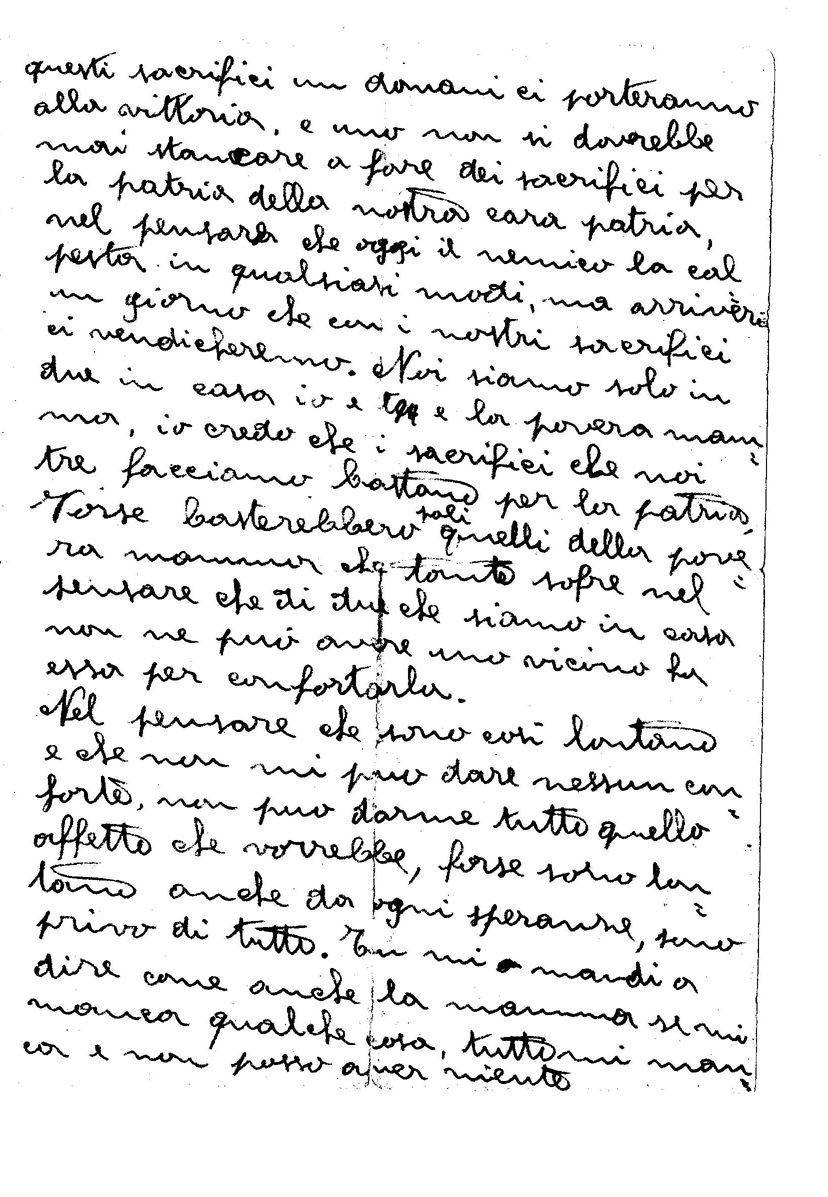 questi sacrifici un domani ci porteranno
alla vittoria, e uno non si dovrebbe
mai stancare a fare dei sacrifici per
la patria della nostra cara patria,
nel pensare che oggi il nemico la cal
pesta in qualsiasi modi, ma arriverà
un giorno che con i nostri sacrifici
ci vendicheremo. Noi siamo solo in
due in casa io e te e la povera mam=
ma, io credo che i sacrifici che noi
tre facciamo bastano per la patria,
Forse basterebbero soli quelli della pove=
ra mamma che tanto sofre nel
pensare che di due che siamo in casa
non ne può avere uno vicino ha
essa per confortarla.
Nel pensare che sono così lontano
e che non mi puo dare nessun con=
forto, non puo darme tutto quello
affetto che vorrebbe, forse sono lon=
tano anche da ogni speranse, sono
privo di tutto. Tu mi mandi a
dire come anche la mamma se mi
manca qualche cosa, tutto mi man=
ca e non posso aver niente